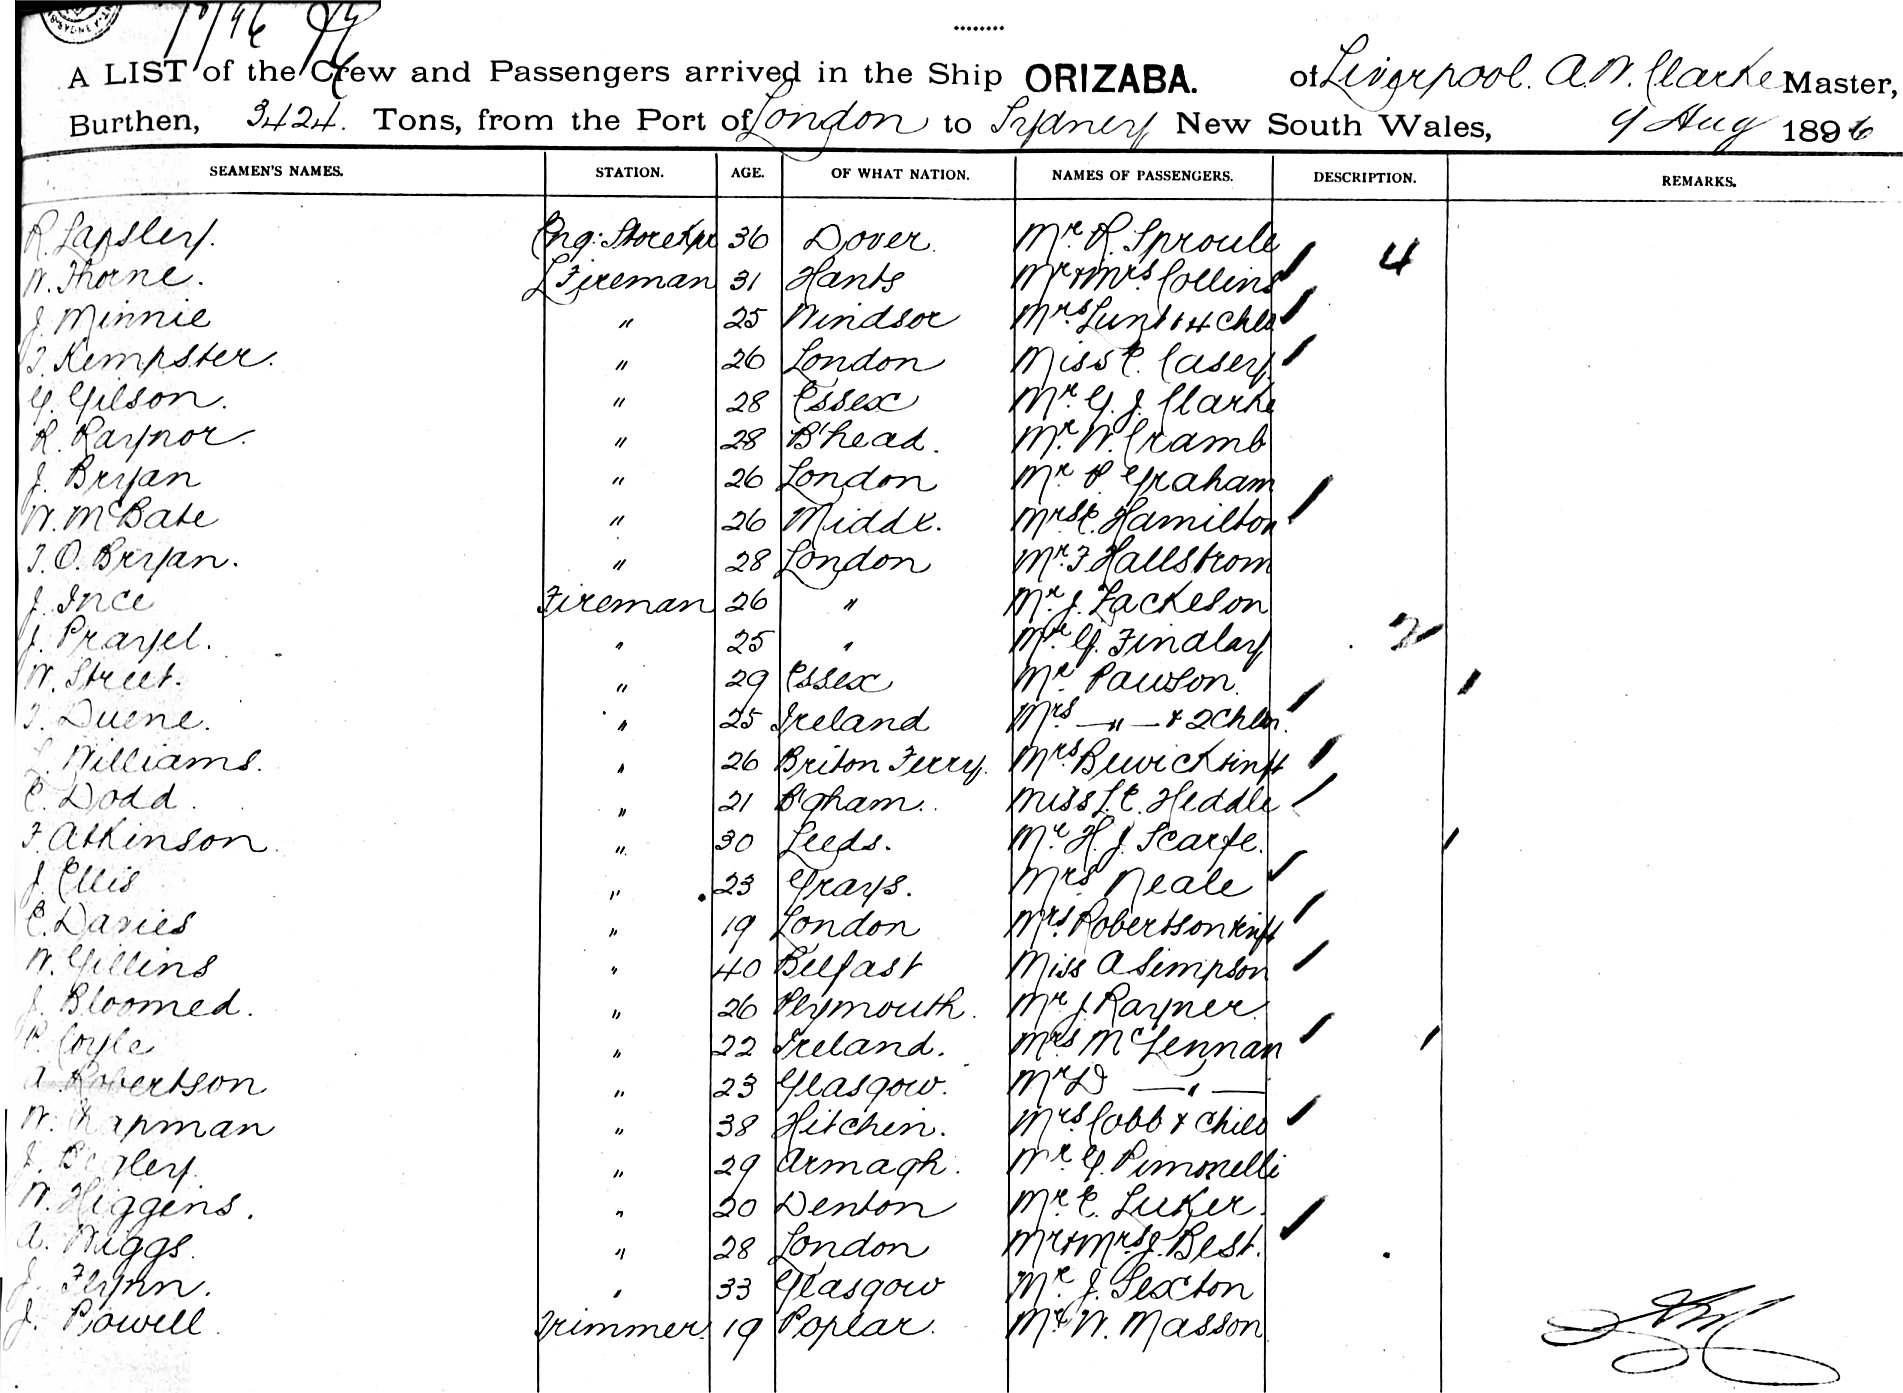 A LIST of the Crew and Passengers arrived in the Ship ORIZABA. of Liverpool. A. W. Clarke Master,
Burthen, 3424. Tons, from the Port of London to Sydney New South Wales, 9 Aug 1896
SEAMEN'S NAMES. STATION. AGE. OF WHAT NATION. NAMES OF PASSENGERS. DESCRIPTION. REMARKS.
R. Lapsley. Eng: Storekpr 36 Dover. Mr R. Sproule
W. Thorne. L Fireman 31 Hants Mr & Mrs Collins 4
J. Minnie " 25 Windsor Mrs Lunt & 4 Chld
T. Kempster. " 26 London Miss E. Casey
G. Gilson. " 28 Essex Mr. G. J. Clarke
R. Raynor. " 28 B'head. Mr. W. Cramb
J. Bryan " 26 London Mr P. Graham
W. McBate " 26 Middx. Mrs E. Hamilton
T. O. Bryan. " 28 London Mr. F Hallstrom
J. Ince Fireman 26 " Mr. J. Fackelson
J. Prayel. " 25 " Mr. G. Findlay 2
W. Street. " 29 Essex Mr Pawson.
T. Duene. " 25 Ireland Mrs —"— & 2 Chldn.
L. Williams. " 26 Briton Ferry. Mrs Bewick & inft
C. Dodd. " 21 B'gham. Miss L. E. Heddle
F. Atkinson. " 30 Leeds. Mr H. J. Scarfe.
J. Ellis " 23 Grays. Mrs Neale
E. Davies " 19 London Mrs. Robertson & inft
W. Gillins " 40 Belfast Miss A Simpson
J. Bloomed. " 26 Plymouth. Mr J. Rayner
P. Coyle " 22 Ireland. Mrs McLennan
A. Robertson " 23 Glasgow. Mr D —"—
W. Chapman " 38 Hitchin. Mrs Cobb & Child
J. Begley. " 29 Armagh. Mr G. Pimonelli
W. Higgens. " 20 Denton Mr E. Luker.
A. Wiggs. " 28 London Mr & Mrs J. Best.
J. Flynn. " 33 Glasgow Mr. J. Sexton
J. Powell Trimmer. 19 Poplar. Mr W. Masson